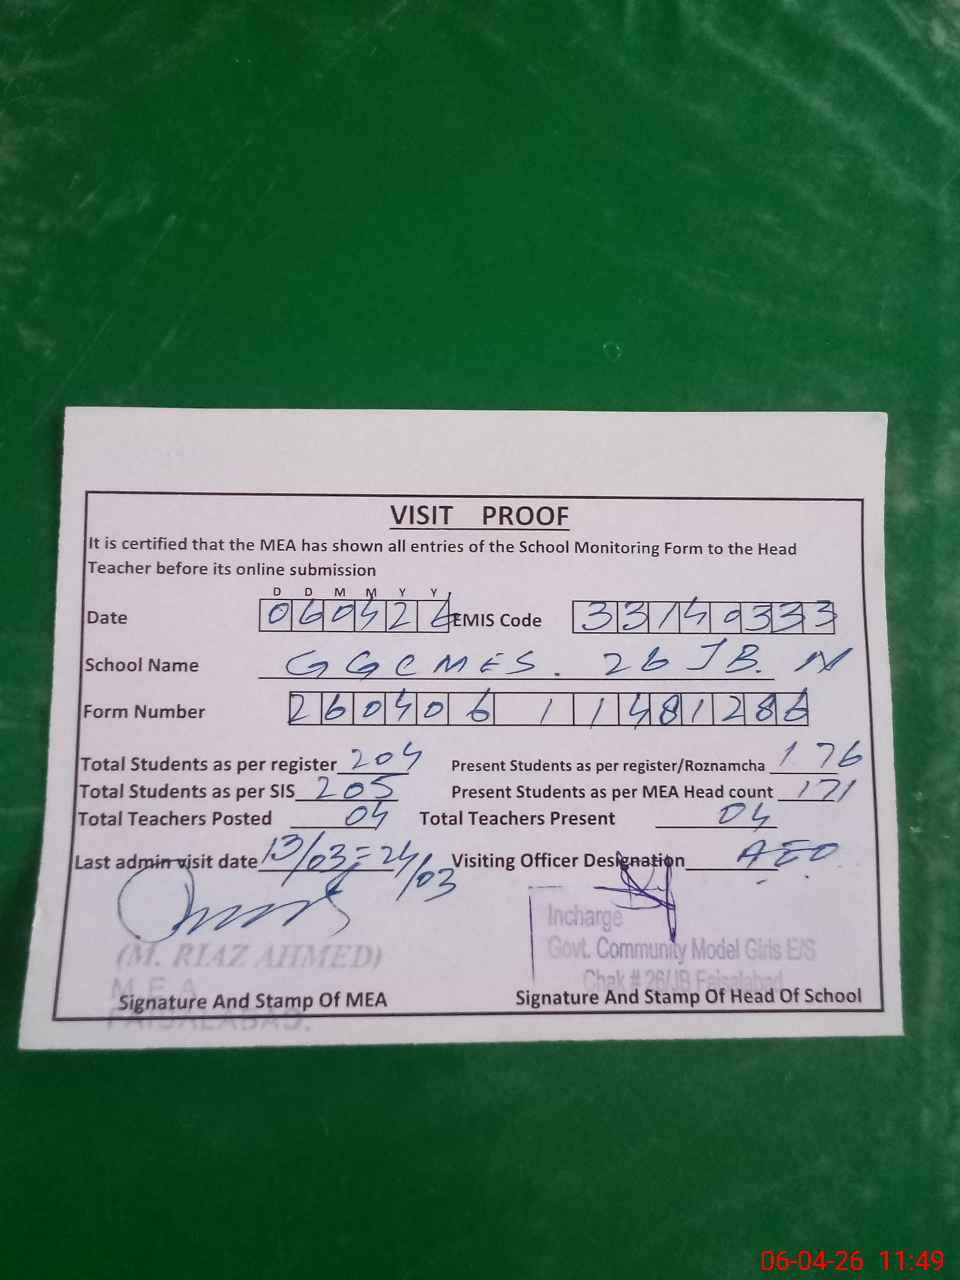 VISIT PROOF
It is certified that the MEA has shown all entries of the School Monitoring Form to the Head
Teacher before its online submission
D D M M Y Y
Date 060426 EMIS Code 33140333
School Name GGCMES. 26 JB. N
Form Number 260406 1 1481286
Total Students as per register 204 Present Students as per register/Roznamcha 176
Total Students as per SIS 205 Present Students as per MEA Head count 171
Total Teachers Posted 04 Total Teachers Present 04
Last admin visit date 13/03=24/03 Visiting Officer Designation AEO
(M. RIAZ AHMED)
M.E.A
FAISALABAD.
Signature And Stamp Of MEA
Incharge
Govt. Community Model Girls E/S
Chak # 26/JB Faisalabad
Signature And Stamp Of Head Of School
06-04-26 11:49